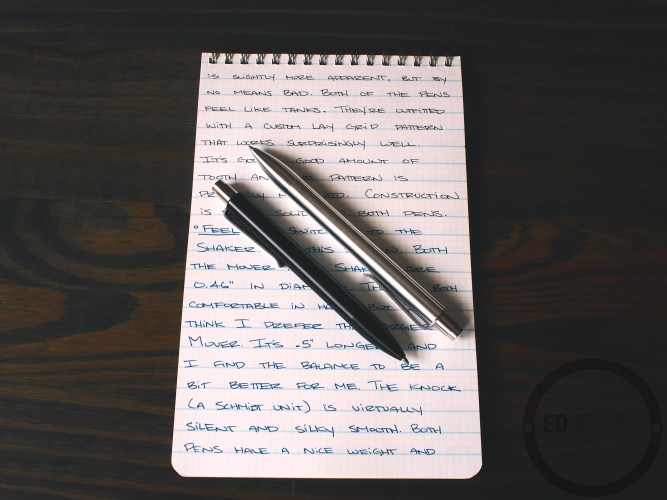 IS SLIGHTLY MORE APPARENT, BUT BY
NO MEANS BAD. BOTH OF THE PENS
FEEL LIKE TANKS. THEY'RE OUTFITTED
WITH A CUSTOM LAY GRID PATTERN
THAT WORKS SURPRISINGLY WELL.
IT'S GOOD AMOUNT OF
TOOTH PATTERN IS
CONSTRUCTION
IS BOTH PENS.
° FEEL THE
SHAKER BOTH
THE MOVER
0.46" IN BOTH
COMFORTABLE IN
THINK I PREFER
MOVER. IT'S .5" LONGER AND
I FIND THE BALANCE TO BE A
BIT BETTER FOR ME. THE KNOCK
(A SCHMIDT UNIT) IS VIRTUALLY
SILENT AND SILKY SMOOTH. BOTH
PENS HAVE A NICE WEIGHT AND
ED